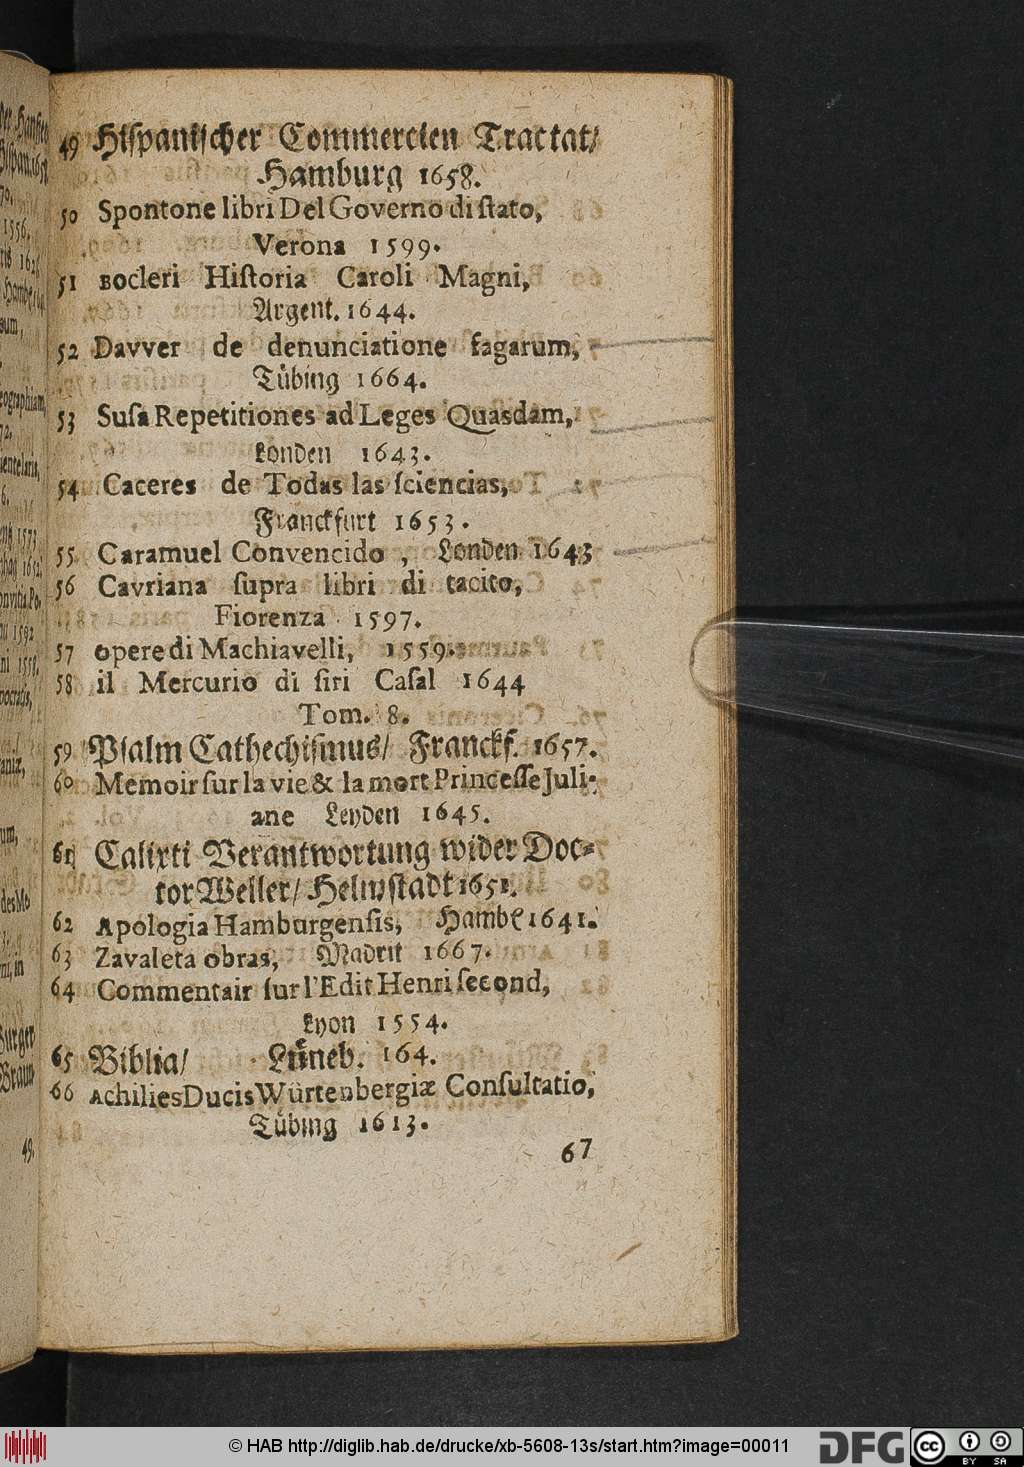 49 Hiſpaniſcher Commercien Tractat/
Hamburg 1658.
50 Spontone libri Del Governo di ſtato,
Verona 1599.
51 Bocleri Hiſtoria Caroli Magni,
Argent. 1644.
52 Davver de denunciatione ſagarum,
Tübing 1664.
53 Suſa Repetitiones ad Leges Quasdam,
Londen 1643.
54 Caceres de Todas las ſciencias,
Franckfurt 1653.
55 Caramuel Convencido, Londen 1643
56 Cavriana ſupra libri di tacito,
Fiorenza 1597.
57 opere di Machiavelli, 1559.
58 il Mercurio di ſiri Caſal 1644
Tom. 8.
59 Pſalm Cathechiſmus/ Franckf. 1657.
60 Memoir ſur la vie & la mort Princeſſe Juli-
ane Leyden 1645.
61 Calixti Verantwortung wider Doc-
tor Weller/ Helmſtadt 1651.
62 Apologia Hamburgenſis, Hamb. 1641.
63 Zavaleta obras, Madrit 1667.
64 Commentair ſur l'Edit Henri ſecond,
Lyon 1554.
65 Biblia/ Lüneb. 164.
66 Achilies Ducis Würtenbergiæ Conſultatio,
Tübing 1613.
67
49.
© HAB http://diglib.hab.de/drucke/xb-5608-13s/start.htm?image=00011
DFG
cc
BY SA